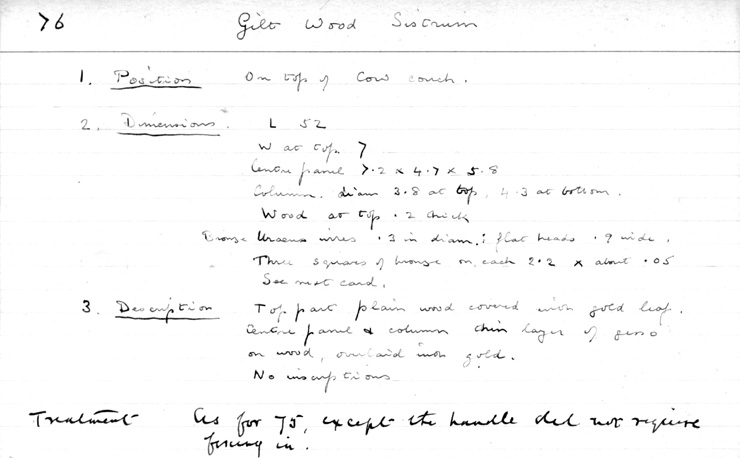 76 Gilt Wood Sistrum
1. Position On top of Cow couch.
2. Dimensions. L 52
W at top 7
Centre panel 7.2 x 4.7 x 5.8
Column. diam 3.8 at top, 4.3 at bottom.
Wood at top .2 thick
Bronze Uraeus wires .3 in diam.; flat heads .9 wide.
Three squares of bronze on each 2.2 x about .05
See next card.
3. Description Top part plain wood covered with gold leaf.
Centre panel & column thin layer of gesso
on wood, overlaid with gold.
No inscriptions
Treatment As for 75, except the handle did not require
fixing in.